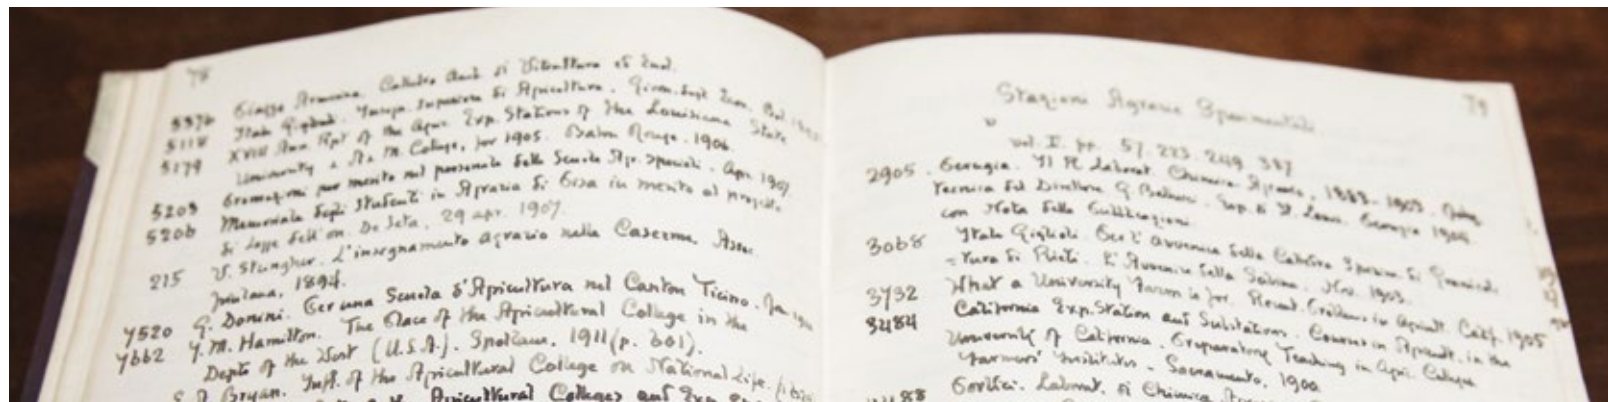 78
5376 Piazza Armerina. Cattedra Amb. di Viticultura ed Enol.
5118 Italo Giglioli. Insegn. Superiore di Agricoltura. Giorn. degli Econ. Bol.
5179 XVIII Ann. Rpt of the Agric. Exp. Stations of the Louisiana State
University & A. & M. College, for 1905. Baton Rouge. 1906.
5203 Promozioni per merito nel personale delle Scuole Agr. Speciali. Apr. 1907.
5206 Memoriale degli Studenti in Agraria di Pisa in merito al progetto
di legge dell'on. De Seta, 29 apr. 1907.
215 V. Stringher. L'insegnamento agrario nelle Caserme. Assoc.
1894.
7520 G. Donini. Per una Scuola d'Agricoltura nel Canton Ticino.
7662 J. M. Hamilton. The Place of the Agricultural College in the
Depts of the West (U.S.A.). Spokane, 1911 (p. 601).
Bryan. Infl. of the Agricultural College on National Life.
Agricultural Colleges and Exp.
79
Stazioni Agrarie Sperimentali.
v
vol. II. pp. 57. 223. 249. 387
2905. Perugia. Il R. Laborat. Chimica Agraria, 1883-1903.
Tecnica del Direttore G. Bellucci. Esp. di St. Louis. Perugia 1904.
con Nota delle Pubblicazioni.
3068 Italo Giglioli. Per l'avvenire della Cattedra Sperim. di
=tura di Rieti. L'Avvenire della Sabina. Nov. 1903.
3732 What a University Farm is for. Recent Problems in Agricult. Calif. 1905
3484 California Exp. Station and Substations. Courses in Agricult. in the
University of California. Preparatory Teaching in Agric. Colleges
Farmers' Institutes. Sacramento, 1900
88 Portici. Laborat. di Chimica